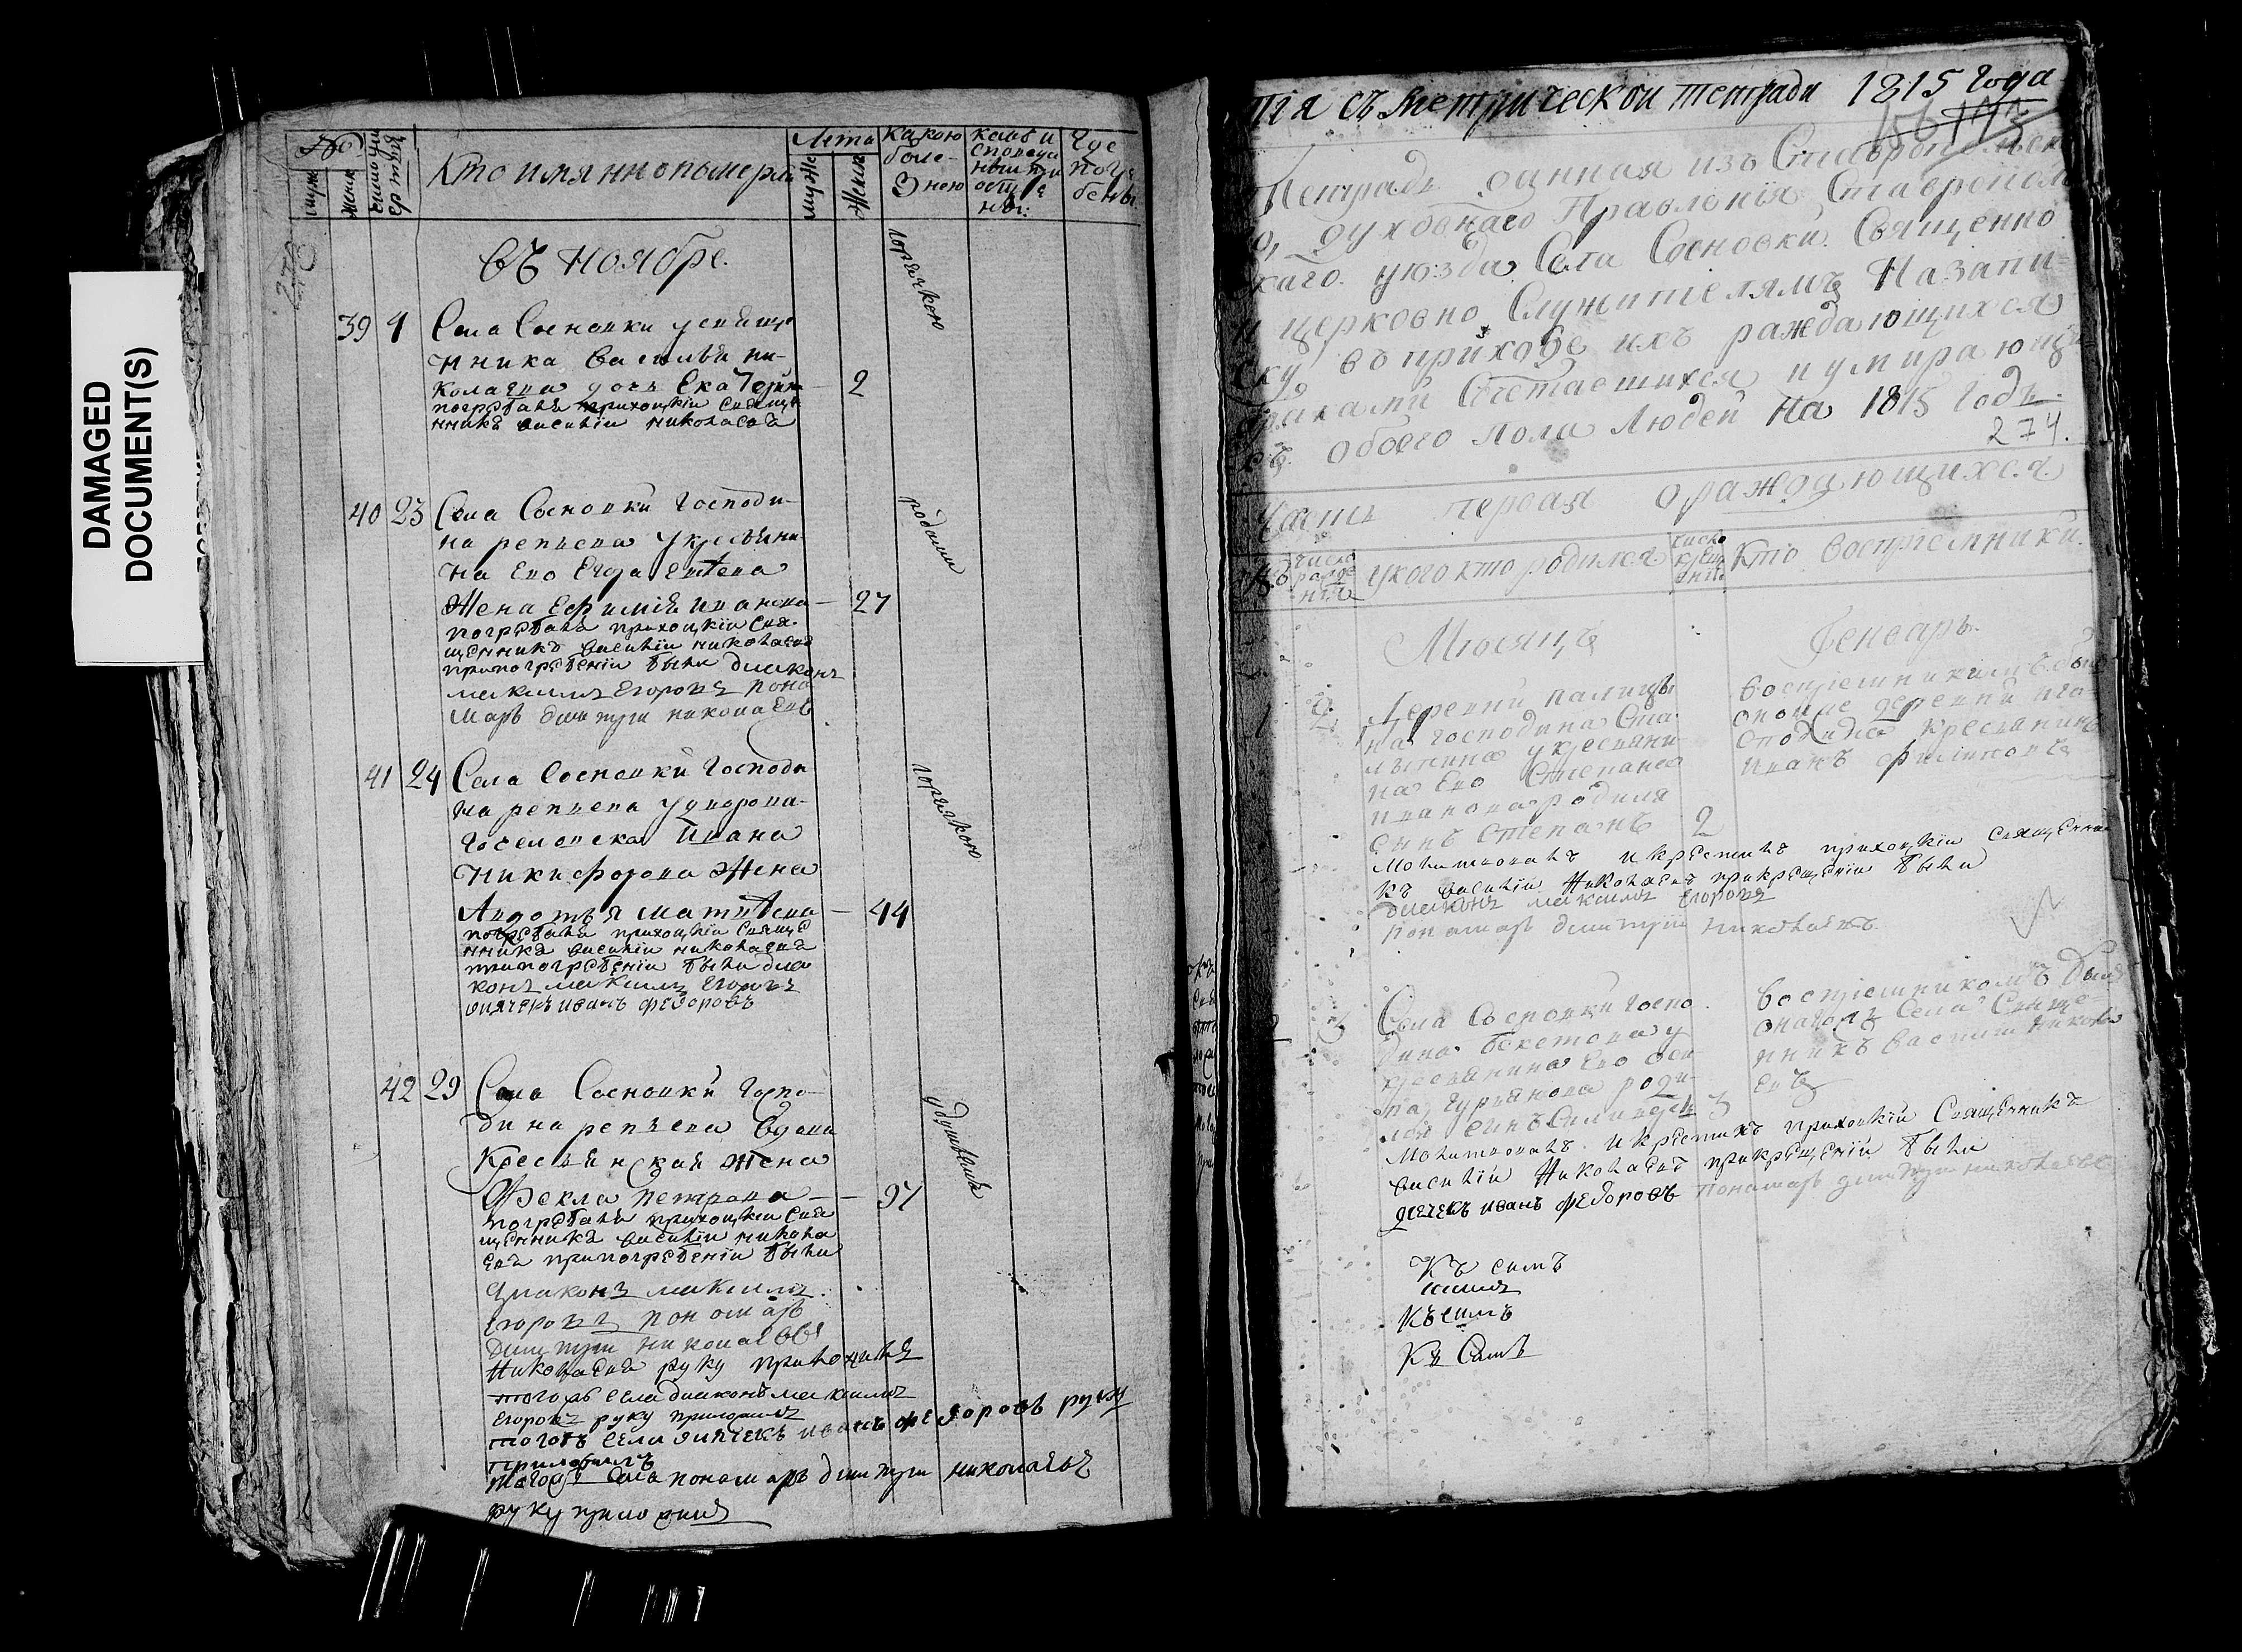 DAMAGED
DOCUMENT(S)
№
муж
женс
число умерш
Кто имянно померли
Лета
муже
женск
Какою
боле-
знею
кемъ и
споведа
ны и при
обще
ны:
Где
погр
бены
въ Ноябре.
39 4 Села Сосновки у священ
нника Василья ни-
колаева дочь Екатерина — 2
горячкою
погребалъ приходкiи священ
нникъ василiи николаевъ
40 23 Села Сосновки Господи-
на репьева у крестьяни-
на Ево Егора
Жена Ефимiя иванова — 27
родами
погребалъ приходкiи свя-
щенникъ василiи николаевъ
при погребенiи были диаконъ
максимъ Егоровъ поно
марь дмитрiи николаевъ
41 24 Села Сосновки Господи
на репьева у дворова-
го человека Ивана
Никифорова Жена
Авдотья матвеева — 44
горячкою
погребалъ приходкiи свяще
нникъ василiи николаевъ
при погребенiи были диа
конъ максимъ Егоровъ
диячекъ иванъ федоровъ
42 29 Села Сосновки Госпо-
дина репьева вдова
Крестьянская жена
Фекла петрова — 97
удушьемъ
погребалъ приходкiи свя
щенникъ василiи никола
евъ при погребенiи были
диаконъ максимъ
Егоровъ пономарь
дмитрiи николаевъ
Николаевъ руку приложилъ
тогожъ села диаконъ максимъ
Егоровъ руку приложилъ
тогожъ села диячекъ иванъ федоровъ руку
приложилъ
тогожъ села пономарь дмитрiи николаевъ
руку приложилъ
съ метрической тетради 1815 Года
Тетрадь данная изъ Ставропольск
духовнаго Правленiя Ставрополь
скаго уезда Села Сосновки Священно
и церковно Служителямъ На запи-
ску въ приходе ихъ раждающихся
браками Сочетавшихся и умирающи
хъ обоего пола Людей На 1815 Годъ.
274.
Часть первая о раждающихся.
№
число
рожде
нiя
у кого кто родился
число
креще
нiя
Кто воспрiемники.
Месяцъ Генварь.
1 2 Деревни палицы
на господина
у крестьяни
на Ево Степана
иванова родился
сынъ Степанъ 2
воспрiемникомъ былъ
оной же деревни
крестьянинъ
иванъ филиповъ
молитвовалъ и крестилъ приходкiи священни
къ василiи Николаевъ при крещенiи были
диаконъ максимъ Егоровъ
пономарь дмитрiи николаевъ
2 3 Села Сосновки госпо
дина бекетова у
крестьянина Ево
гурьянова роди-
лся сынъ 3
воспрiемникомъ былъ
онагожъ Села Свяще-
нникъ василiи никола
евъ
молитвовалъ и крестилъ приходкiи Священникъ
василiи Николаевъ при крещенiи были
диячекъ иванъ федоровъ пономарь дмитрiи николаевъ
Къ симъ
Къ симъ
Къ Симъ